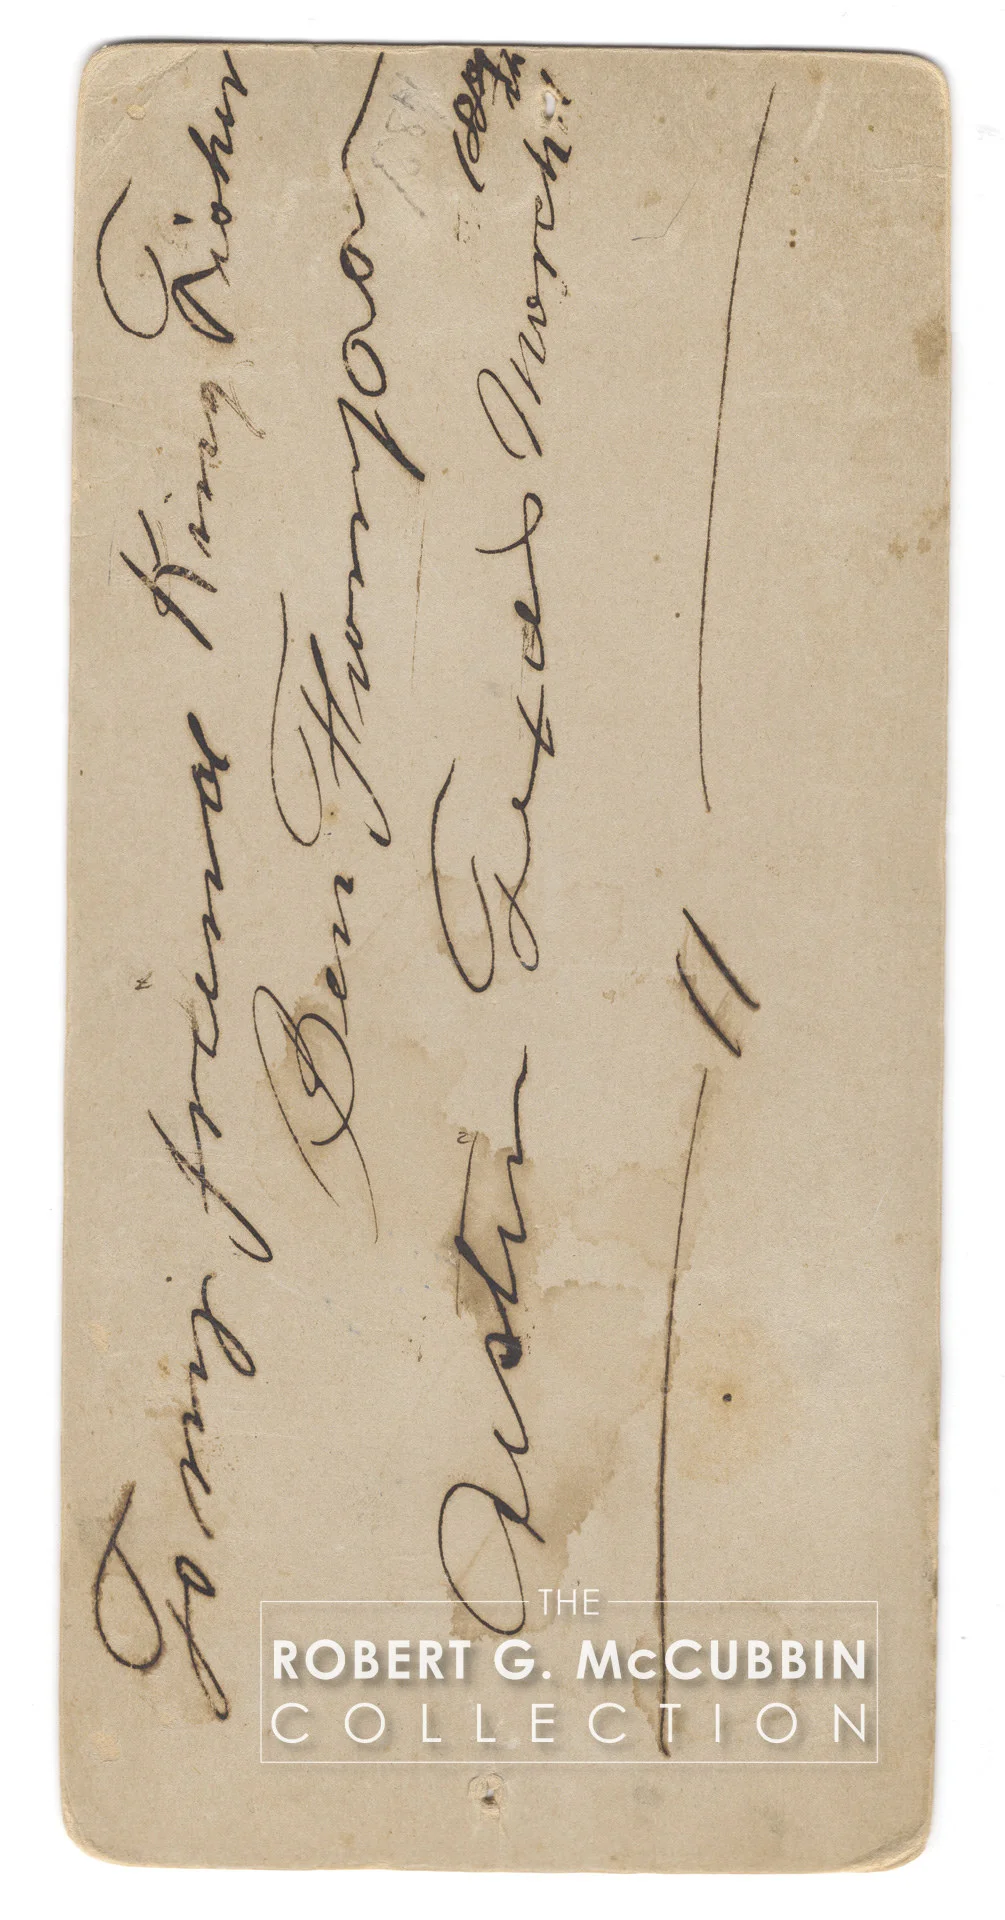 To my friend King Fisher
Ben Thompson
Austin Texas March
THE
ROBERT G. McCUBBIN
COLLECTION